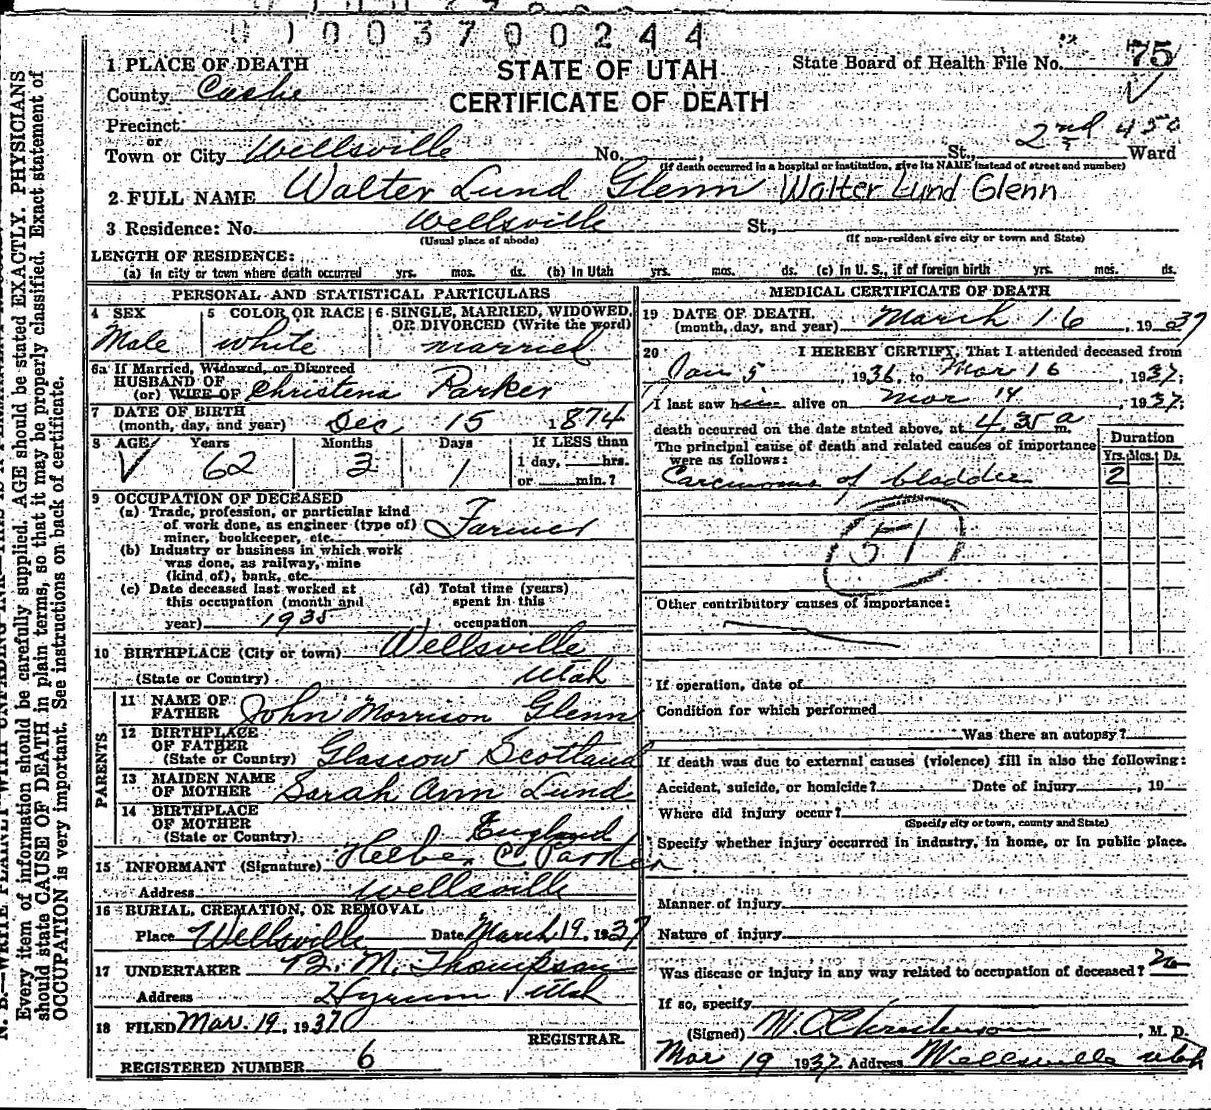 0 1 0 0 3 7 0 0 2 4 4
1 PLACE OF DEATH
STATE OF UTAH
CERTIFICATE OF DEATH
State Board of Health File No. 75
County Cache
Precinct
or
Town or City Wellsville No. St., 2nd Ward
450
(If death occurred in a hospital or institution, give its NAME instead of street and number)
2 FULL NAME Walter Lund Glenn Walter Lund Glenn
3 Residence: No. Wellsville St.,
(Usual place of abode) (If non-resident give city or town and State)
LENGTH OF RESIDENCE:
(a) In city or town where death occurred yrs. mos. ds. (b) In Utah yrs. mos. ds. (c) In U. S., if of foreign birth yrs. mos. ds.
PERSONAL AND STATISTICAL PARTICULARS
4 SEX Male
5 COLOR OR RACE white
6 SINGLE, MARRIED, WIDOWED, OR DIVORCED (Write the word) married
6a If Married, Widowed, or Divorced
HUSBAND OF
(or) WIFE OF Christena Parker
7 DATE OF BIRTH
(month, day, and year) Dec 15 1874
8 AGE Years Months Days If LESS than
62 3 1 1 day, hrs.
or min.?
9 OCCUPATION OF DECEASED
(a) Trade, profession, or particular kind
of work done, as engineer (type of)
miner, bookkeeper, etc. Farmer
(b) Industry or business in which work
was done, as railway, mine
(kind of), bank, etc.
(c) Date deceased last worked at
this occupation (month and
year) 1935
(d) Total time (years)
spent in this
occupation
10 BIRTHPLACE (City or town) Wellsville
(State or Country) Utah
PARENTS
11 NAME OF
FATHER John Morrison Glenn
12 BIRTHPLACE
OF FATHER
(State or Country) Glascow Scotland
13 MAIDEN NAME
OF MOTHER Sarah Ann Lund
14 BIRTHPLACE
OF MOTHER
(State or Country) England
15 INFORMANT (Signature) Heber C Parker
Address wellsville
16 BURIAL, CREMATION, OR REMOVAL
Place Wellsville Date March 19, 1937
17 UNDERTAKER B. M. Thompson
Address Hyrum Utah
18 FILED Mar. 19, 1937
REGISTRAR.
REGISTERED NUMBER 6
MEDICAL CERTIFICATE OF DEATH
19 DATE OF DEATH
(month, day, and year) March 16, 1937
20 I HEREBY CERTIFY, That I attended deceased from
Jan 5, 1936, to Mar 16, 1937;
I last saw him alive on Mar 14, 1937;
death occurred on the date stated above, at 4.35 a m.
The principal cause of death and related causes of importance
were as follows:
Duration
Yrs. Mos. Ds.
Carcinoma of bladder 2
51
Other contributory causes of importance:
If operation, date of
Condition for which performed
Was there an autopsy?
If death was due to external causes (violence) fill in also the following:
Accident, suicide, or homicide? Date of injury , 19
Where did injury occur?
(Specify city or town, county and State)
Specify whether injury occurred in industry, in home, or in public place.
Manner of injury
Nature of injury
Was disease or injury in any way related to occupation of deceased? no
If so, specify
(Signed) W. O. Christenson, M. D.
Mar 19 1937 Address Wellsville Utah
Every item of information should be carefully supplied. AGE should be stated EXACTLY. PHYSICIANS
should state CAUSE OF DEATH in plain terms, so that it may be properly classified. Exact statement of
OCCUPATION is very important. See instructions on back of certificate.